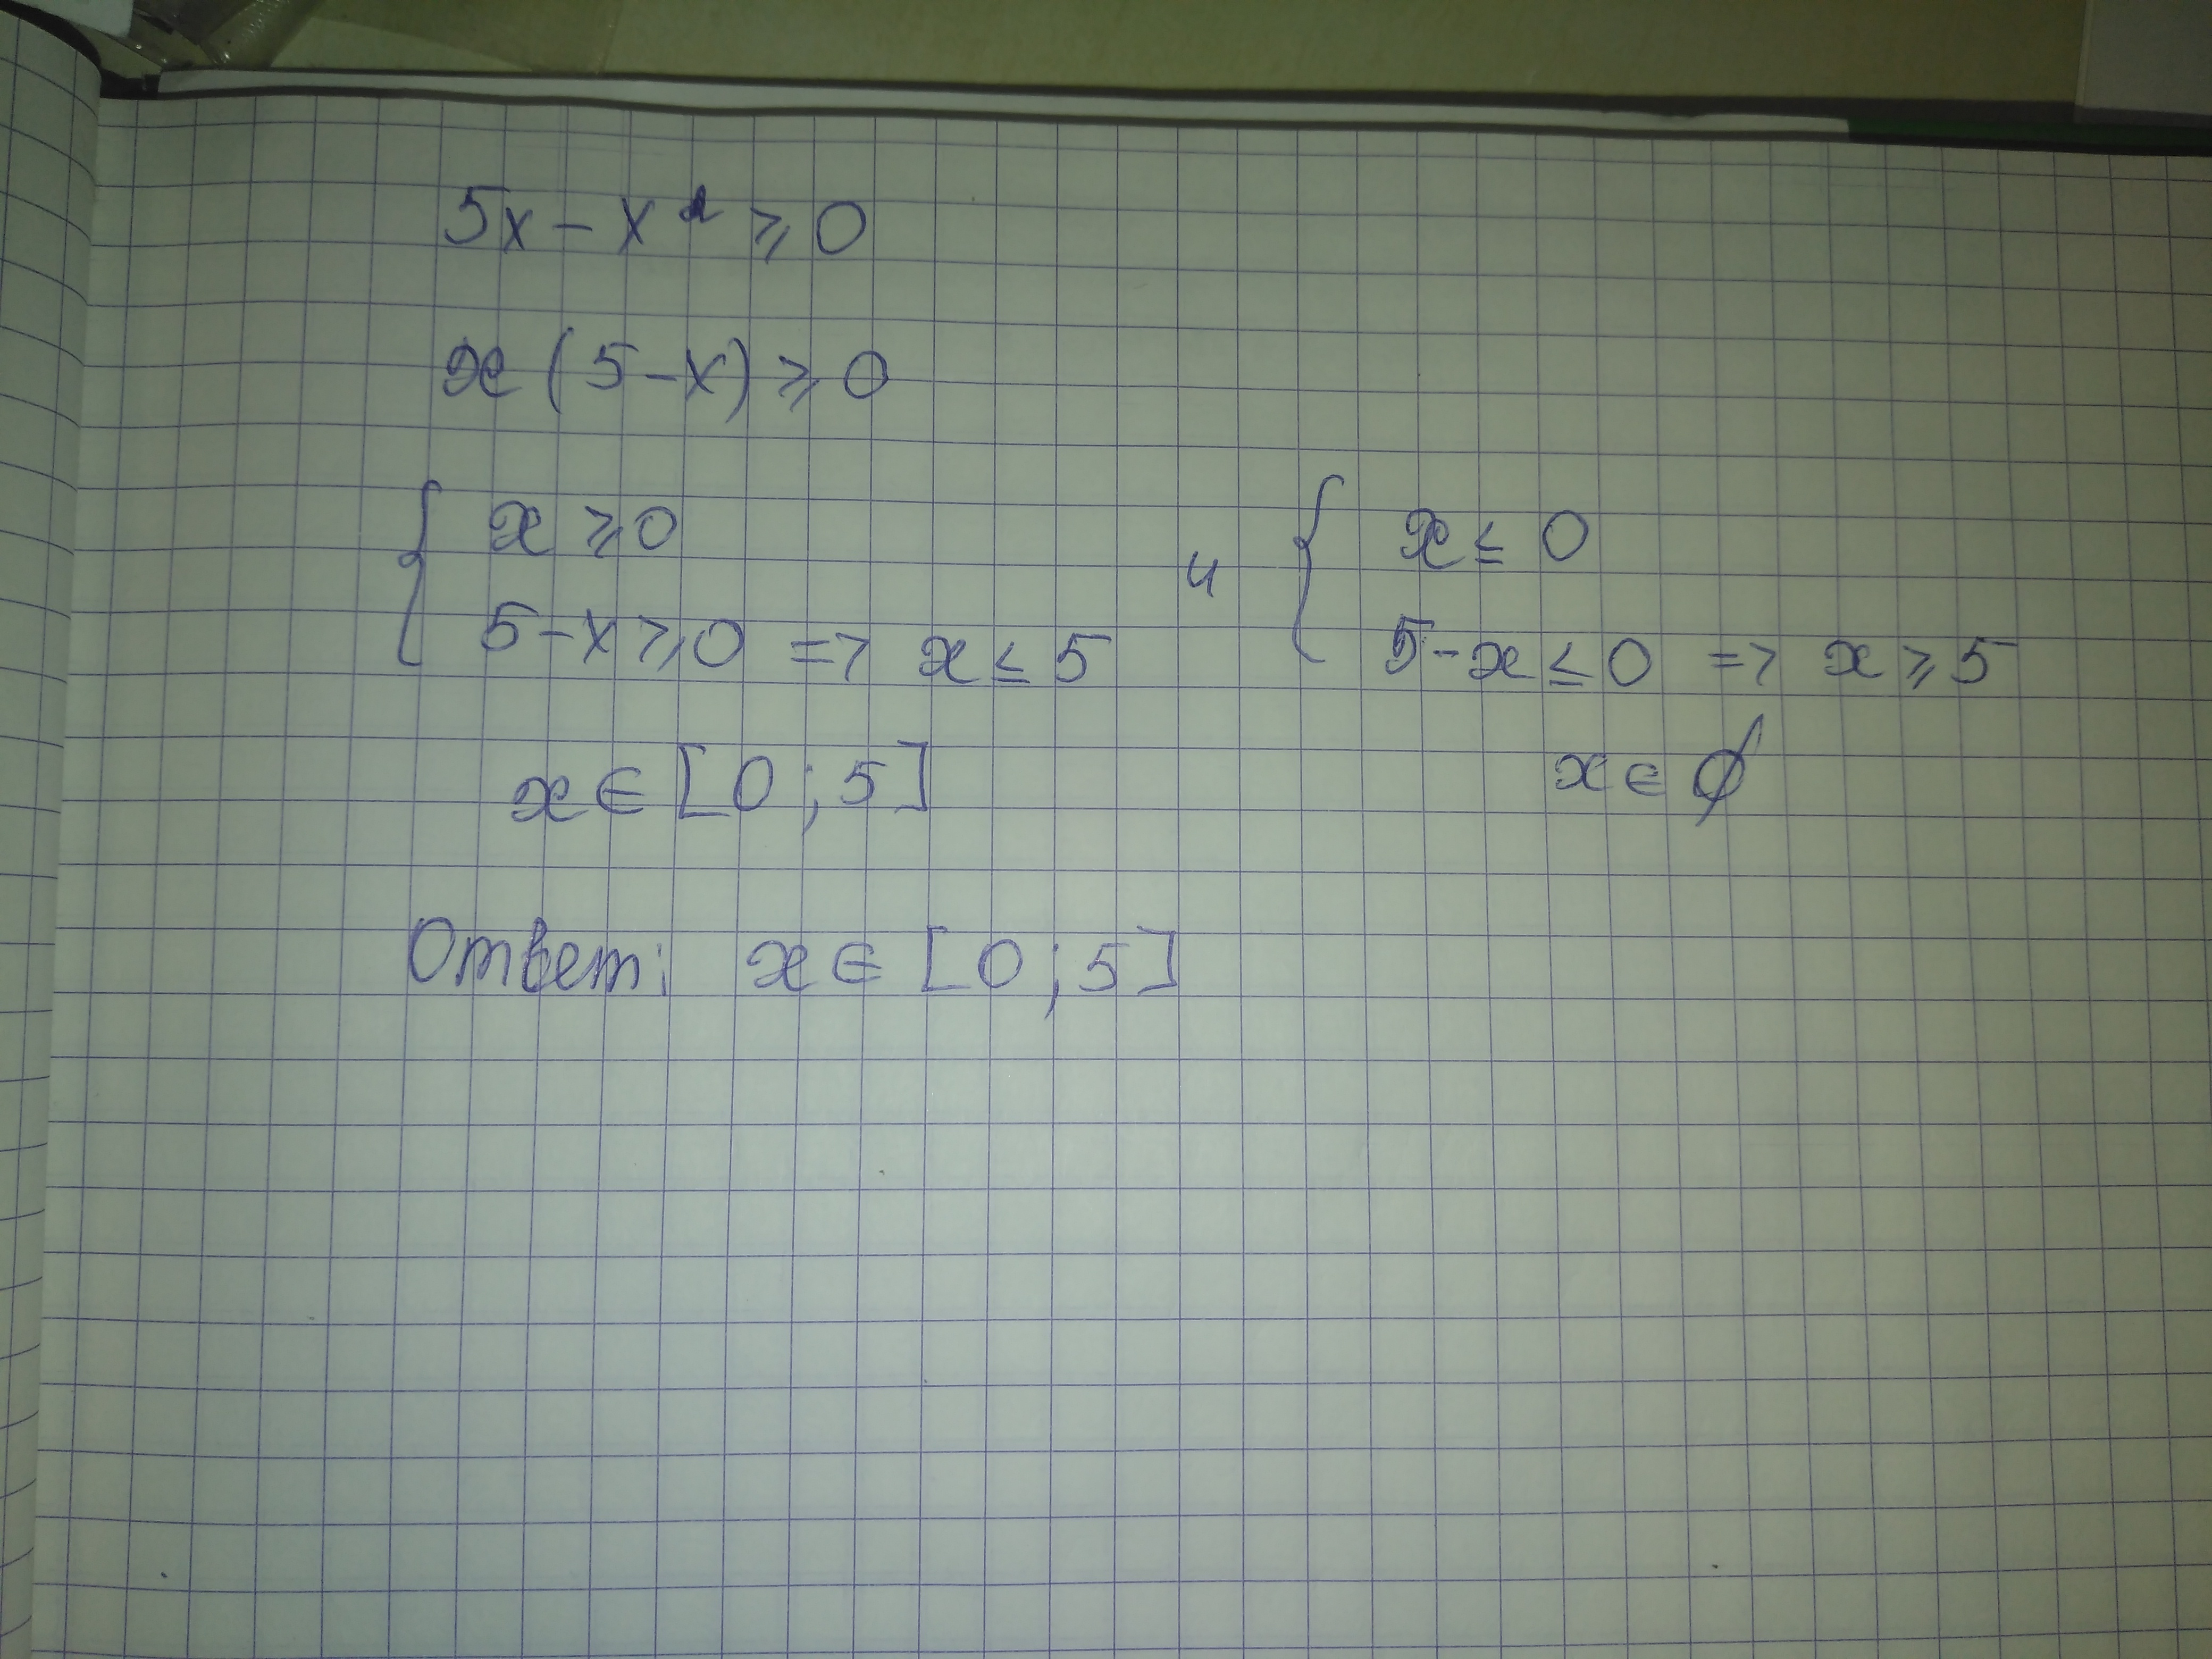 5x - x² ⩾ 0
x (5 - x) ⩾ 0
{ x ⩾ 0
5 - x ⩾ 0 => x ≤ 5
и
{ x ≤ 0
5 - x ≤ 0 => x ⩾ 5
x ∈ [0 ; 5]
x ∈ ∅
Ответ: x ∈ [0 ; 5]